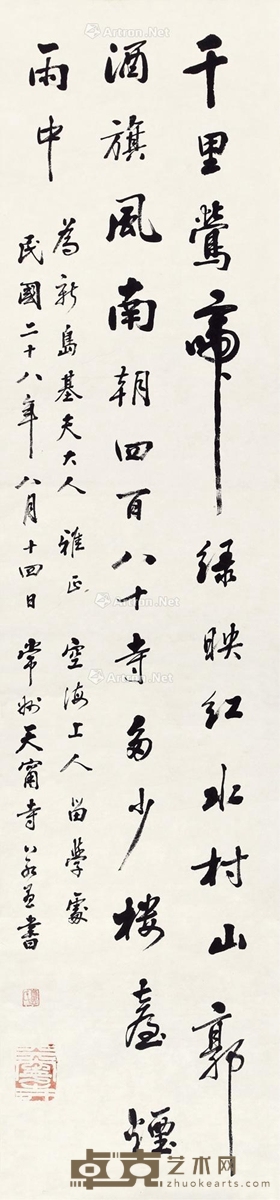 千里鶯啼綠映紅水村山郭
酒旗風南朝四百八十寺多少樓臺煙
雨中
為新島基夫大人雅正 空海上人留學處
民國二十八年八月十四日常州天甯寺
書
Artron.Net
卓克艺术网
zhuokearts.com